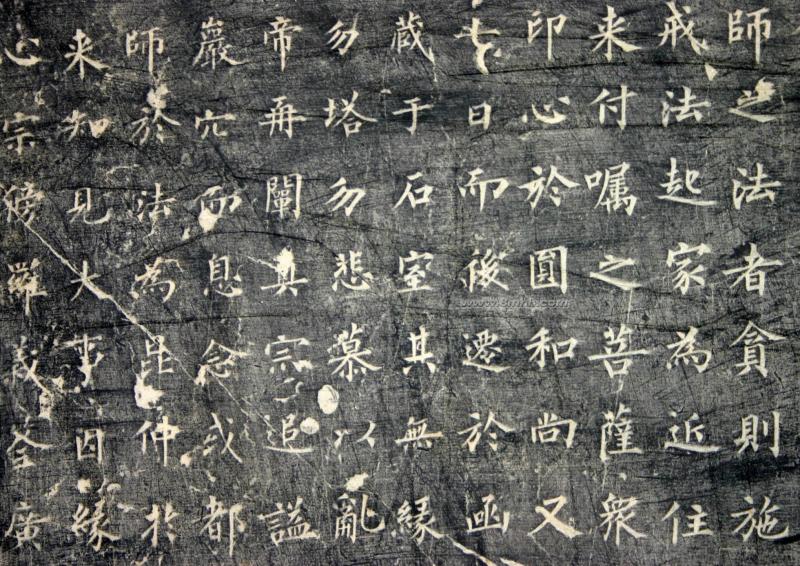 師之法者貪則施
戒法起家為近住
来付嘱之菩薩衆
印心於圓和尚又
七日而後遷於函
藏于石室其無緣
勿塔勿悲慕以亂
帝再闡真宗追謚
巖穴而息念或都
師於法為昆仲於
来知見大事因緣
心宗義廣
www.8mhh.com